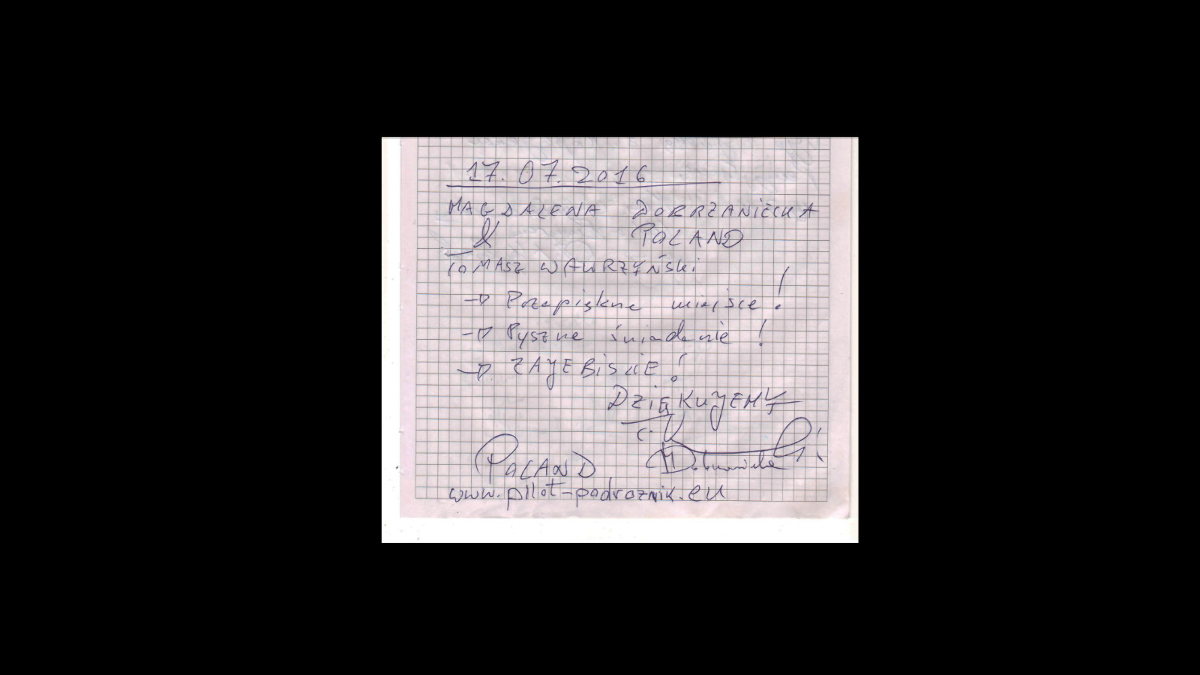 17.07.2016
MAGDALENA DOBRZANIECKA
& POLAND
TOMASZ WAWRZYŃSKI
→ Przepiękne miejsce!
→ Pyszne śniadanie!
→ ZAJEBISKIE!
DZIĘKUJEMY
POLAND
www.pilot-podroznik.eu